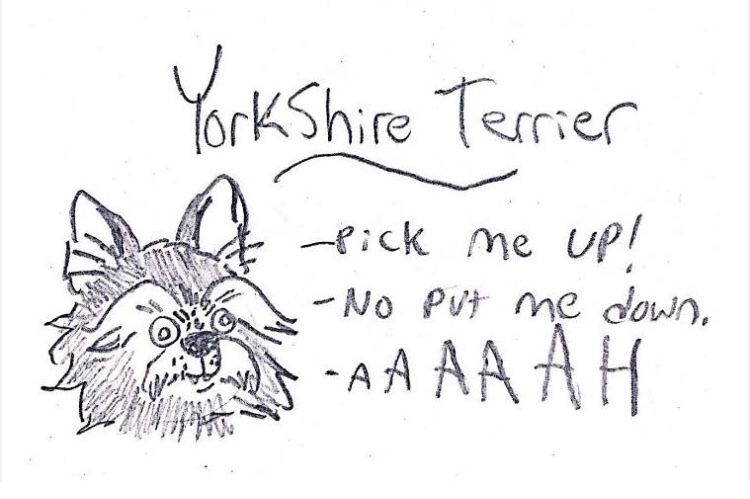 Yorkshire Terrier
- Pick me up!
- No put me down.
- AAAAAH